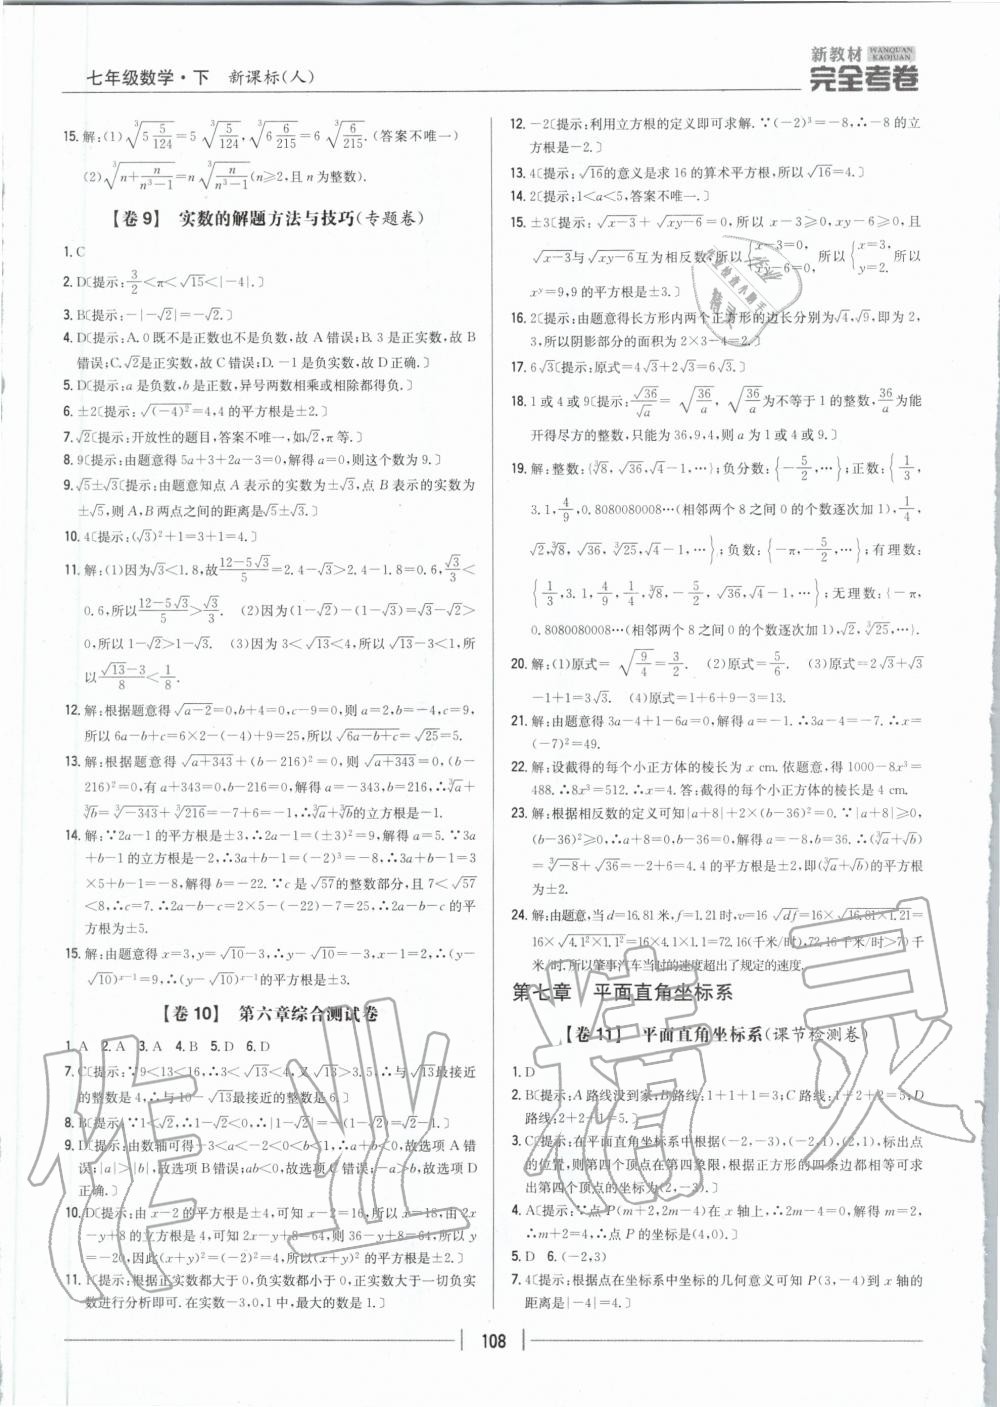 七年级数学·下 新课标(人)
新教材 WANQUAN KAOJUAN
完全考卷
15. 解:(1)∛(5 5/124)=5∛(5/124),∛(6 6/215)=6∛(6/215).(答案不唯一)
(2)∛(n+n/(n³-1))=n∛(n/(n³-1))(n≥2,且n为整数).
【卷9】 实数的解题方法与技巧(专题卷)
1. C
2. D〔提示:3/2<π<√15<|-4|.〕
3. B〔提示:-|-√2|=-√2.〕
4. D〔提示:A.0既不是正数也不是负数,故A错误;B.3是正实数,故B
错误;C.√2是正实数,故C错误;D.-1是负实数,故D正确.〕
5. D〔提示:a是负数,b是正数,异号两数相乘或相除都得负.〕
6. ±2〔提示:√(-4)²=4,4的平方根是±2.〕
7. √2〔提示:开放性的题目,答案不唯一,如√2,π等.〕
8. 9〔提示:由题意得5a+3+2a-3=0,解得a=0,则这个数为9.〕
9. √5±√3〔提示:由题意知点A表示的实数为±√3,点B表示的实数为
±√5,则A,B两点之间的距离是√5±√3.〕
10. 4〔提示:(√3)²+1=3+1=4.〕
11. 解:(1)因为√3<1.8,故(12-5√3)/5=2.4-√3>2.4-1.8=0.6,√3/3<
0.6,所以(12-5√3)/5>√3/3. (2)因为(1-√2)-(1-√3)=√3-√2>
0,所以1-√2>1-√3. (3)因为3<√13<4,所以√13-3<1,所
以(√13-3)/8<1/8.
12. 解:根据题意得√(a-2)=0,b+4=0,c-9=0,则a=2,b=-4,c=9,
所以6a-b+c=6×2-(-4)+9=25,所以√(6a-b+c)=√25=5.
13. 解:根据题意得√(a+343)+(b-216)²=0,则√(a+343)=0,(b-
216)²=0,有a+343=0,b-216=0,解得a=-343,b=216,∴∛a+
∛b=∛-343+∛216=-7+6=-1,∴∛a+∛b的立方根是-1.
14. 解:∵2a-1的平方根是±3,∴2a-1=(±3)²=9,解得a=5.∵3a
+b-1的立方根是-2,∴3a+b-1=(-2)³=-8,∴3a+b-1=3
×5+b-1=-8,解得b=-22.∵c是√57的整数部分,且7<√57
<8,∴c=7.∴2a-b-c=2×5-(-22)-7=25,∴2a-b-c的平
方根为±5.
15. 解:由题意得x=3,y=√10-3,∴y-√10=-3,x-1=2,∴(y-
√10)ˣ⁻¹=9,∴(y-√10)ˣ⁻¹的平方根是±3.
【卷10】 第六章综合测试卷
1. A 2. A 3. A 4. B 5. D 6. D
7. C〔提示:∵9<13<16,∴3<√13<4.又√13>3.5,∴与√13最接近
的整数是4,∴与10-√13最接近的整数是6.〕
8. B〔提示:∵1<√2,∴1-√2<0,∴|1-√2|=-(1-√2)=√2-1.〕
9. D〔提示:由数轴可得-3<a<-2<0<b<1,∴a+b<0,故选项A错
误;|a|>|b|,故选项B错误;ab<0,故选项C错误;-a>b,故选项D
正确.〕
10. D〔提示:由x-2的平方根是±4,可知x-2=16,所以x=18,由2x
-y+8的立方根是4,可知2x-y+8=64,则36-y+8=64,所以y
=-20,因此(x+y)²=(-2)²=4,所以(x+y)²的平方根是±2.〕
11. 1〔提示:根据正实数都大于0,负实数都小于0,正实数大于一切负实
数进行分析即可.在实数-3,0,1中,最大的数是1.〕
12. -2〔提示:利用立方根的定义即可求解.∵(-2)³=-8,∴-8的立
方根是-2.〕
13. 4〔提示:√16的意义是求16的算术平方根,所以√16=4.〕
14. 2〔提示:1<a<5,答案不唯一.〕
15. ±3〔提示:√(x-3)+√(xy-6)=0,所以x-3≥0,xy-6≥0,且
√(x-3)与√(xy-6)互为相反数,所以{x-3=0, xy-6=0,所以{x=3, y=2.
xʸ=9,9的平方根是±3.〕
16. 2〔提示:由题意得长方形内两个正方形的边长分别为√4,√9,即为2,
3,所以阴影部分的面积为2×3-4=2.〕
17. 6√3〔提示:原式=4√3+2√3=6√3.〕
18. 1或4或9〔提示:√36/√a=√(36/a),√(36/a)为不等于1的整数,36/a为能
开得尽方的整数,只能为36,9,4,则a为1或4或9.〕
19. 解:整数:{∛8,√36,√4-1,…};负分数:{-5/2,…};正数:{1/3,
3.1,4/9,0.8080080008…(相邻两个8之间0的个数逐次加1),1/4,
√2,∛8,√36,∛25,√4-1,…};负数:{-π,-5/2,…};有理数:
{1/3,3.1,4/9,1/4,∛8,-5/2,√36,√4-1,…};无理数:{-π,
0.8080080008…(相邻两个8之间0的个数逐次加1),√2,∛25,…}.
20. 解:(1)原式=√(9/4)=3/2. (2)原式=5/6. (3)原式=2√3+√3
-1+1=3√3. (4)原式=1+6+9-3=13.
21. 解:由题意得3a-4+1-6a=0,解得a=-1.∴3a-4=-7.∴x=
(-7)²=49.
22. 解:设截得的每个小正方体的棱长为x cm.依题意,得1000-8x³=
488.∴8x³=512.∴x=4.答:截得的每个小正方体的棱长是4 cm.
23. 解:根据相反数的定义可知|a+8|+2×(b-36)²=0.∵|a+8|≥0,
(b-36)²≥0,∴a+8=0,b-36=0,解得a=-8,b=36.∴(∛a+√b)
=∛-8+√36=-2+6=4.4的平方根是±2,即(∛a+√b)的平方根
为±2.
24. 解:由题意,当d=16.81米,f=1.21时,v=16√df=16×√16.81×1.21=
16×√4.1²×1.1²=16×4.1×1.1=72.16(千米/时),72.16(千米/时)>70千
米/时.所以肇事汽车当时的速度超出了规定的速度.
第七章 平面直角坐标系
【卷11】 平面直角坐标系(课节检测卷)
1. D
2. B〔提示:A路线没到家;B路线:1+1+1=3;C路线:1+2+2=5;D
路线:2+2+1=5.〕
3. C〔提示:在平面直角坐标系中根据(-2,-3),(-2,1),(2,1),标出点
的位置,则第四个顶点在第四象限,根据正方形的四条边都相等可求
出第四个顶点的坐标为(2,-3).〕
4. A〔提示:∵点P(m+2,2m-4)在x轴上,∴2m-4=0,解得m=2,
∴m+2=4,∴点P的坐标是(4,0).〕
5. D 6. (-2,3)
7. 4〔提示:根据点在坐标系中坐标的几何意义可知P(3,-4)到x轴的
距离是|-4|=4.〕
108
作业精灵